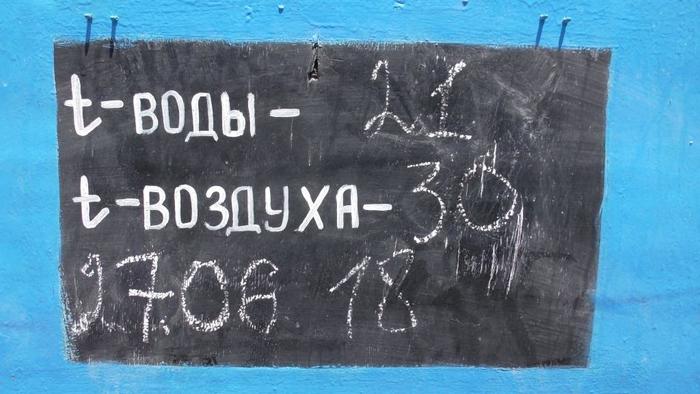 t-ВОДЫ- 21
t-ВОЗДУХА-30
27.06 18